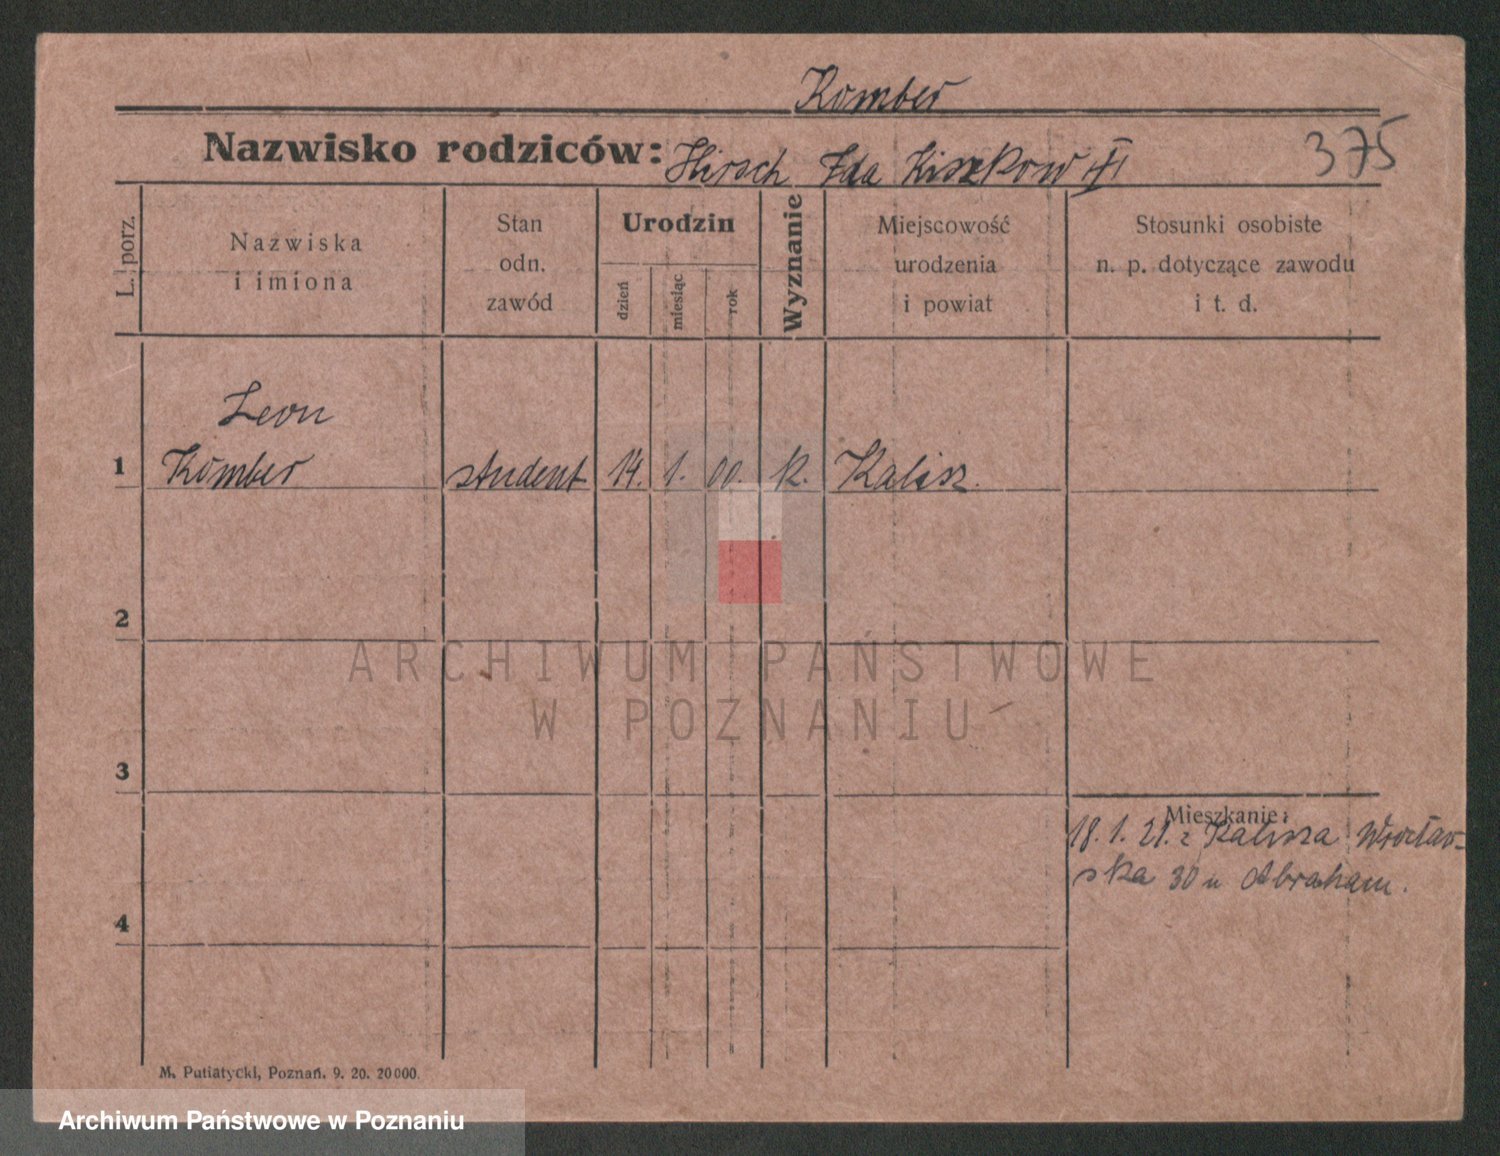 Komber
Nazwisko rodziców: Hirsch Ida Kiszkow
375
L. porz.
Nazwiska
i imiona
Stan
odn.
zawód
Urodzin
dzień
miesiąc
rok
Wyznanie
Miejscowość
urodzenia
i powiat
Stosunki osobiste
n. p. dotyczące zawodu
i t. d.
Leon
1 Komber student 14. 1. 00. k. Kalisz.
2
ARCHIWUM PAŃSTWOWE
W POZNANIU
3
Mieszkanie:
18. 1. 21. z Kalisza Wrocław-
ska 30 u Abraham.
4
M. Putiatycki, Poznań. 9. 20. 20000.
Archiwum Państwowe w Poznaniu